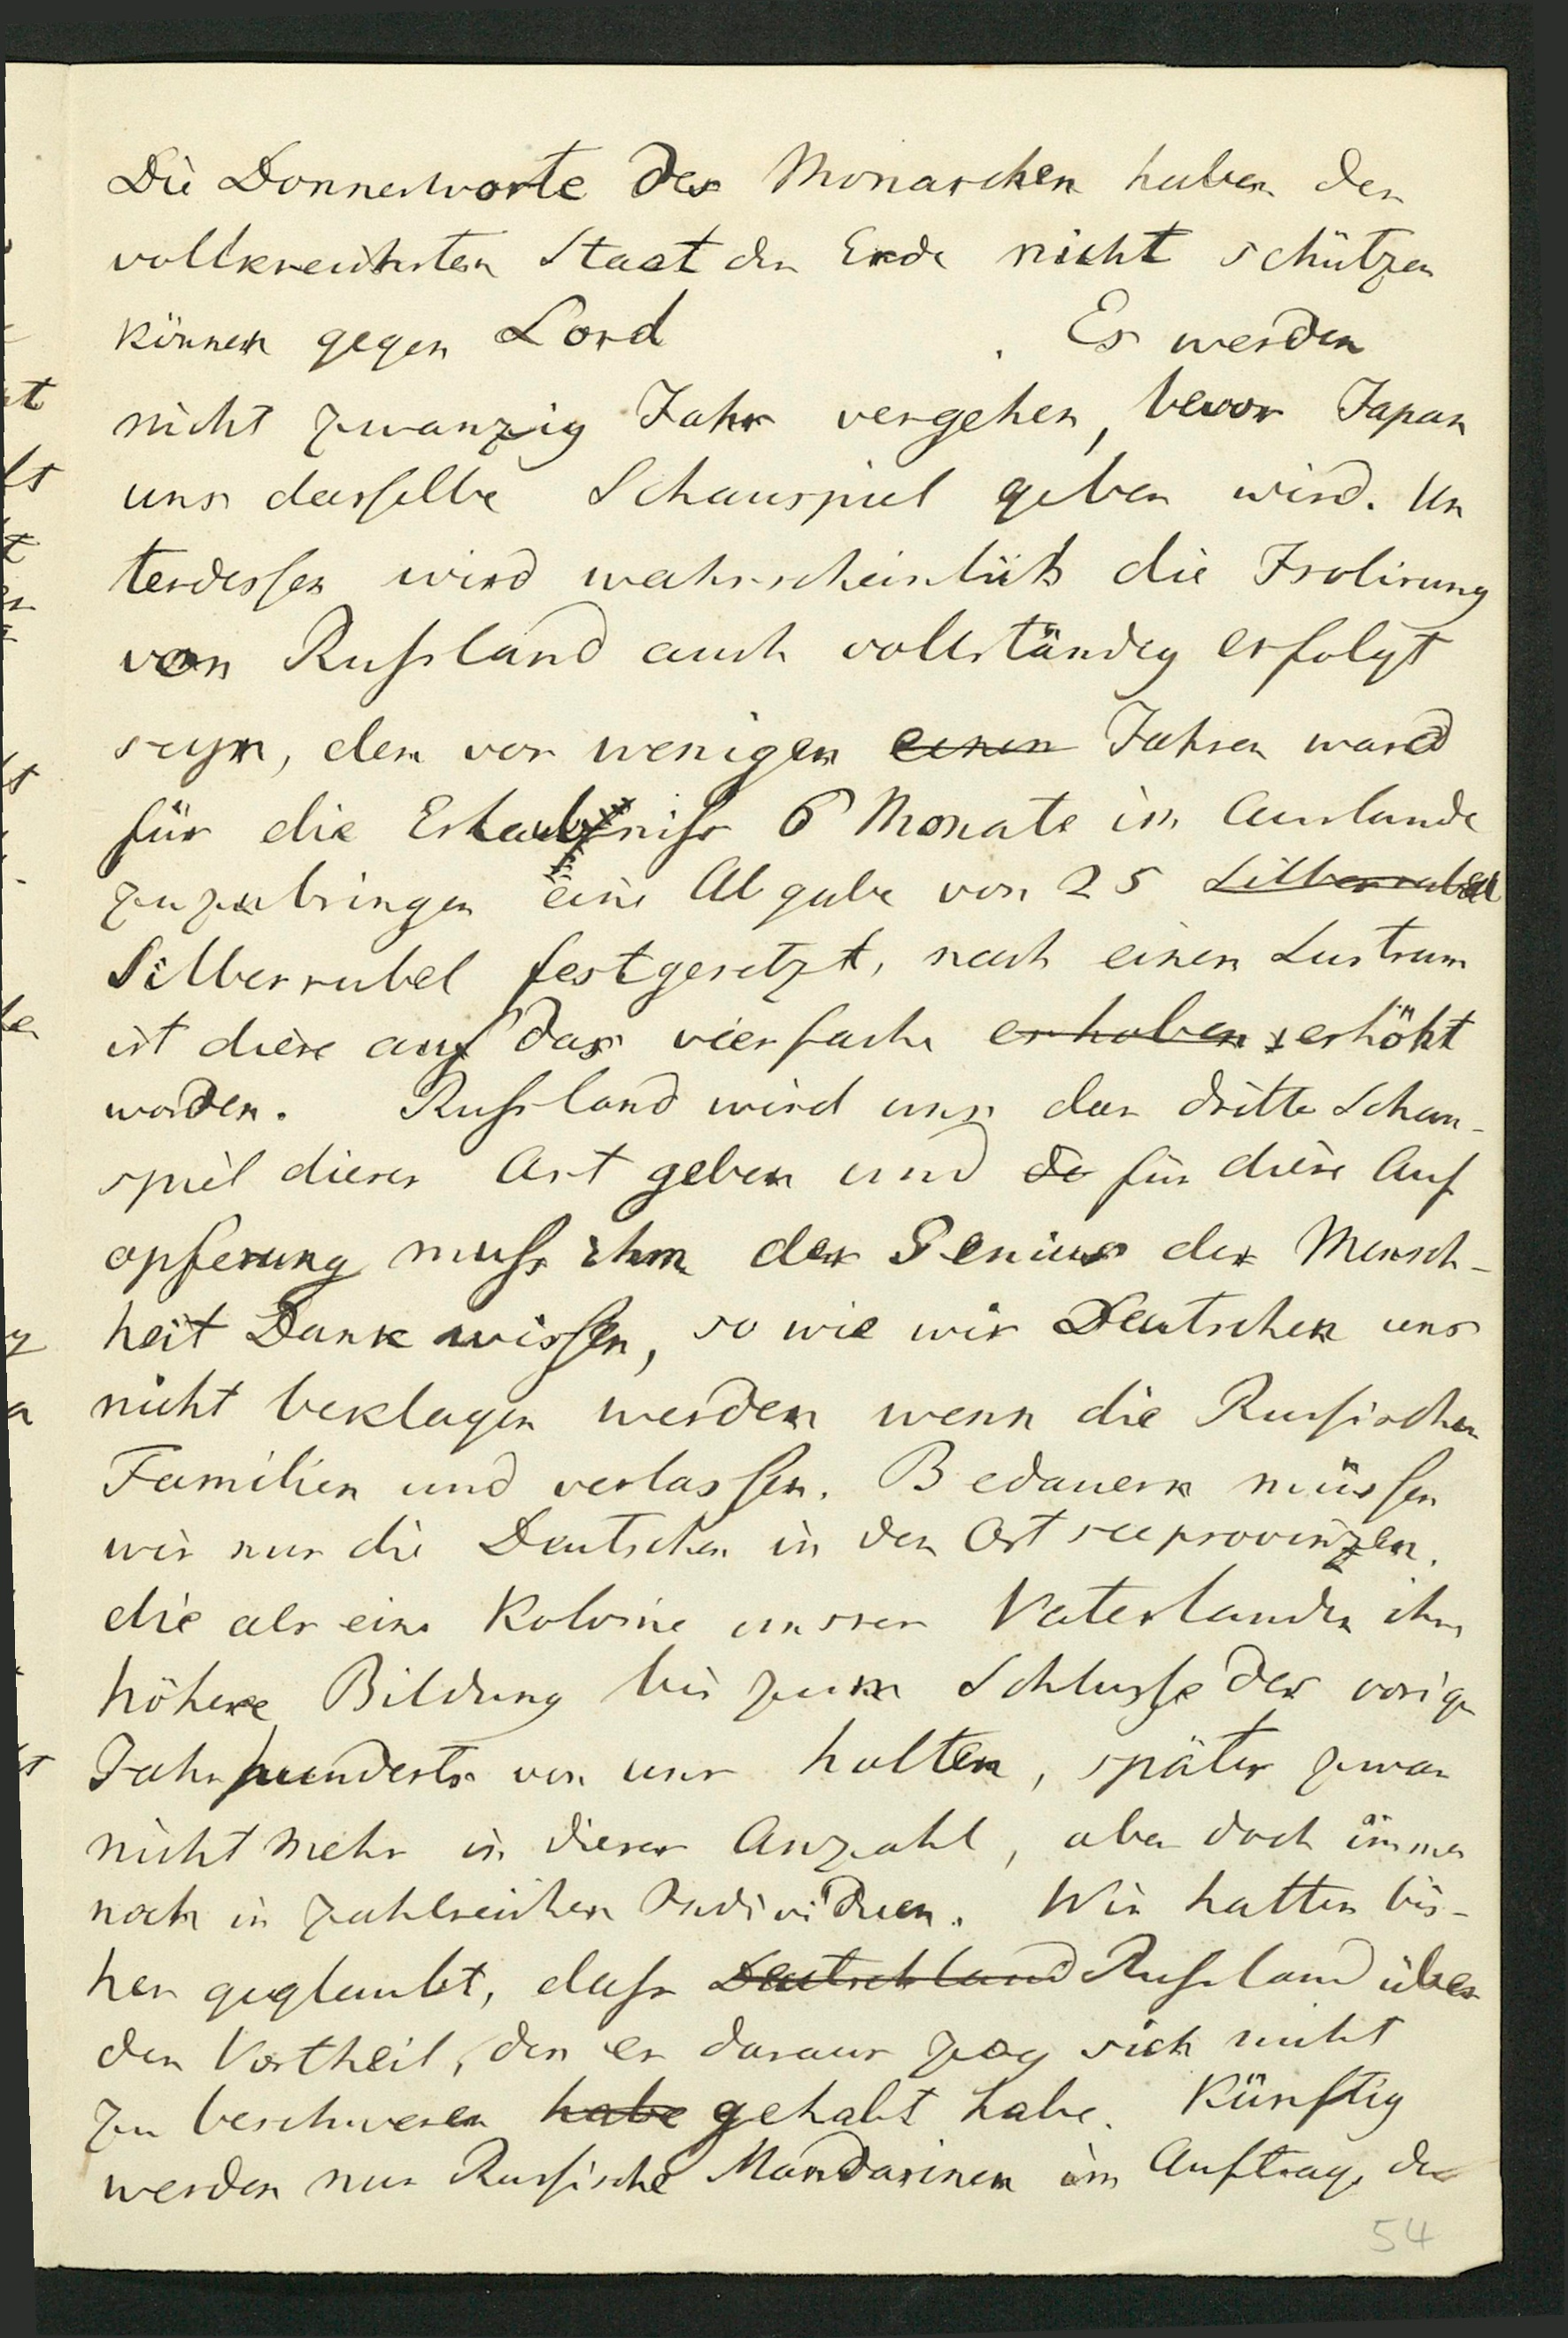 Die Donnerworte des Monarchen haben den
vollkreichsten Staat der Erde nicht schützen
können gegen Lord . Es werden
nicht zwanzig Jahr vergehen, bevor Japan
uns dasselbe Schauspiel geben wird. Un
terdessen wird wahrscheinlich die Isolirung
von Russland auch vollständig erfolgt
seyn, den vor wenigen einen Jahren ward
für die Erlaubniss 6 Monate im Auslande
zuzubringen eine Abgabe von 25 Silberrubel
Silberrubel festgesetzt, nach einem Lustrum
ist diese auf das vierfache erhoben erhöht
worden. Russland wird uns das dritte Schau-
spiel dieser Art geben und do für diese Auf
opferung muss ihm der Genius der Mensch-
heit Dank wissen, so wie wir Deutschen uns
nicht beklagen werden wenn die Russischen
Familien und verlassen. Bedauern müssen
wir nur die Deutschen in den Ostseeprovinzen.
die als eine Kolonie unsres Vaterlandes ihre
höhere Bildung bis zum Schlusse des vorigen
Jahrhunderts von uns holten, später zwar
nicht mehr in dieser Anzahl, aber doch immer
noch in zahlreichen Individuen. Wir hatten bis-
her geglaubt, dass Deutschland Russland über
den Vortheil, den er daraus zog sich nicht
zu beschweren habe gehabt habe. Künftig
werden nur Russische Mandarinen im Auftrage des
54